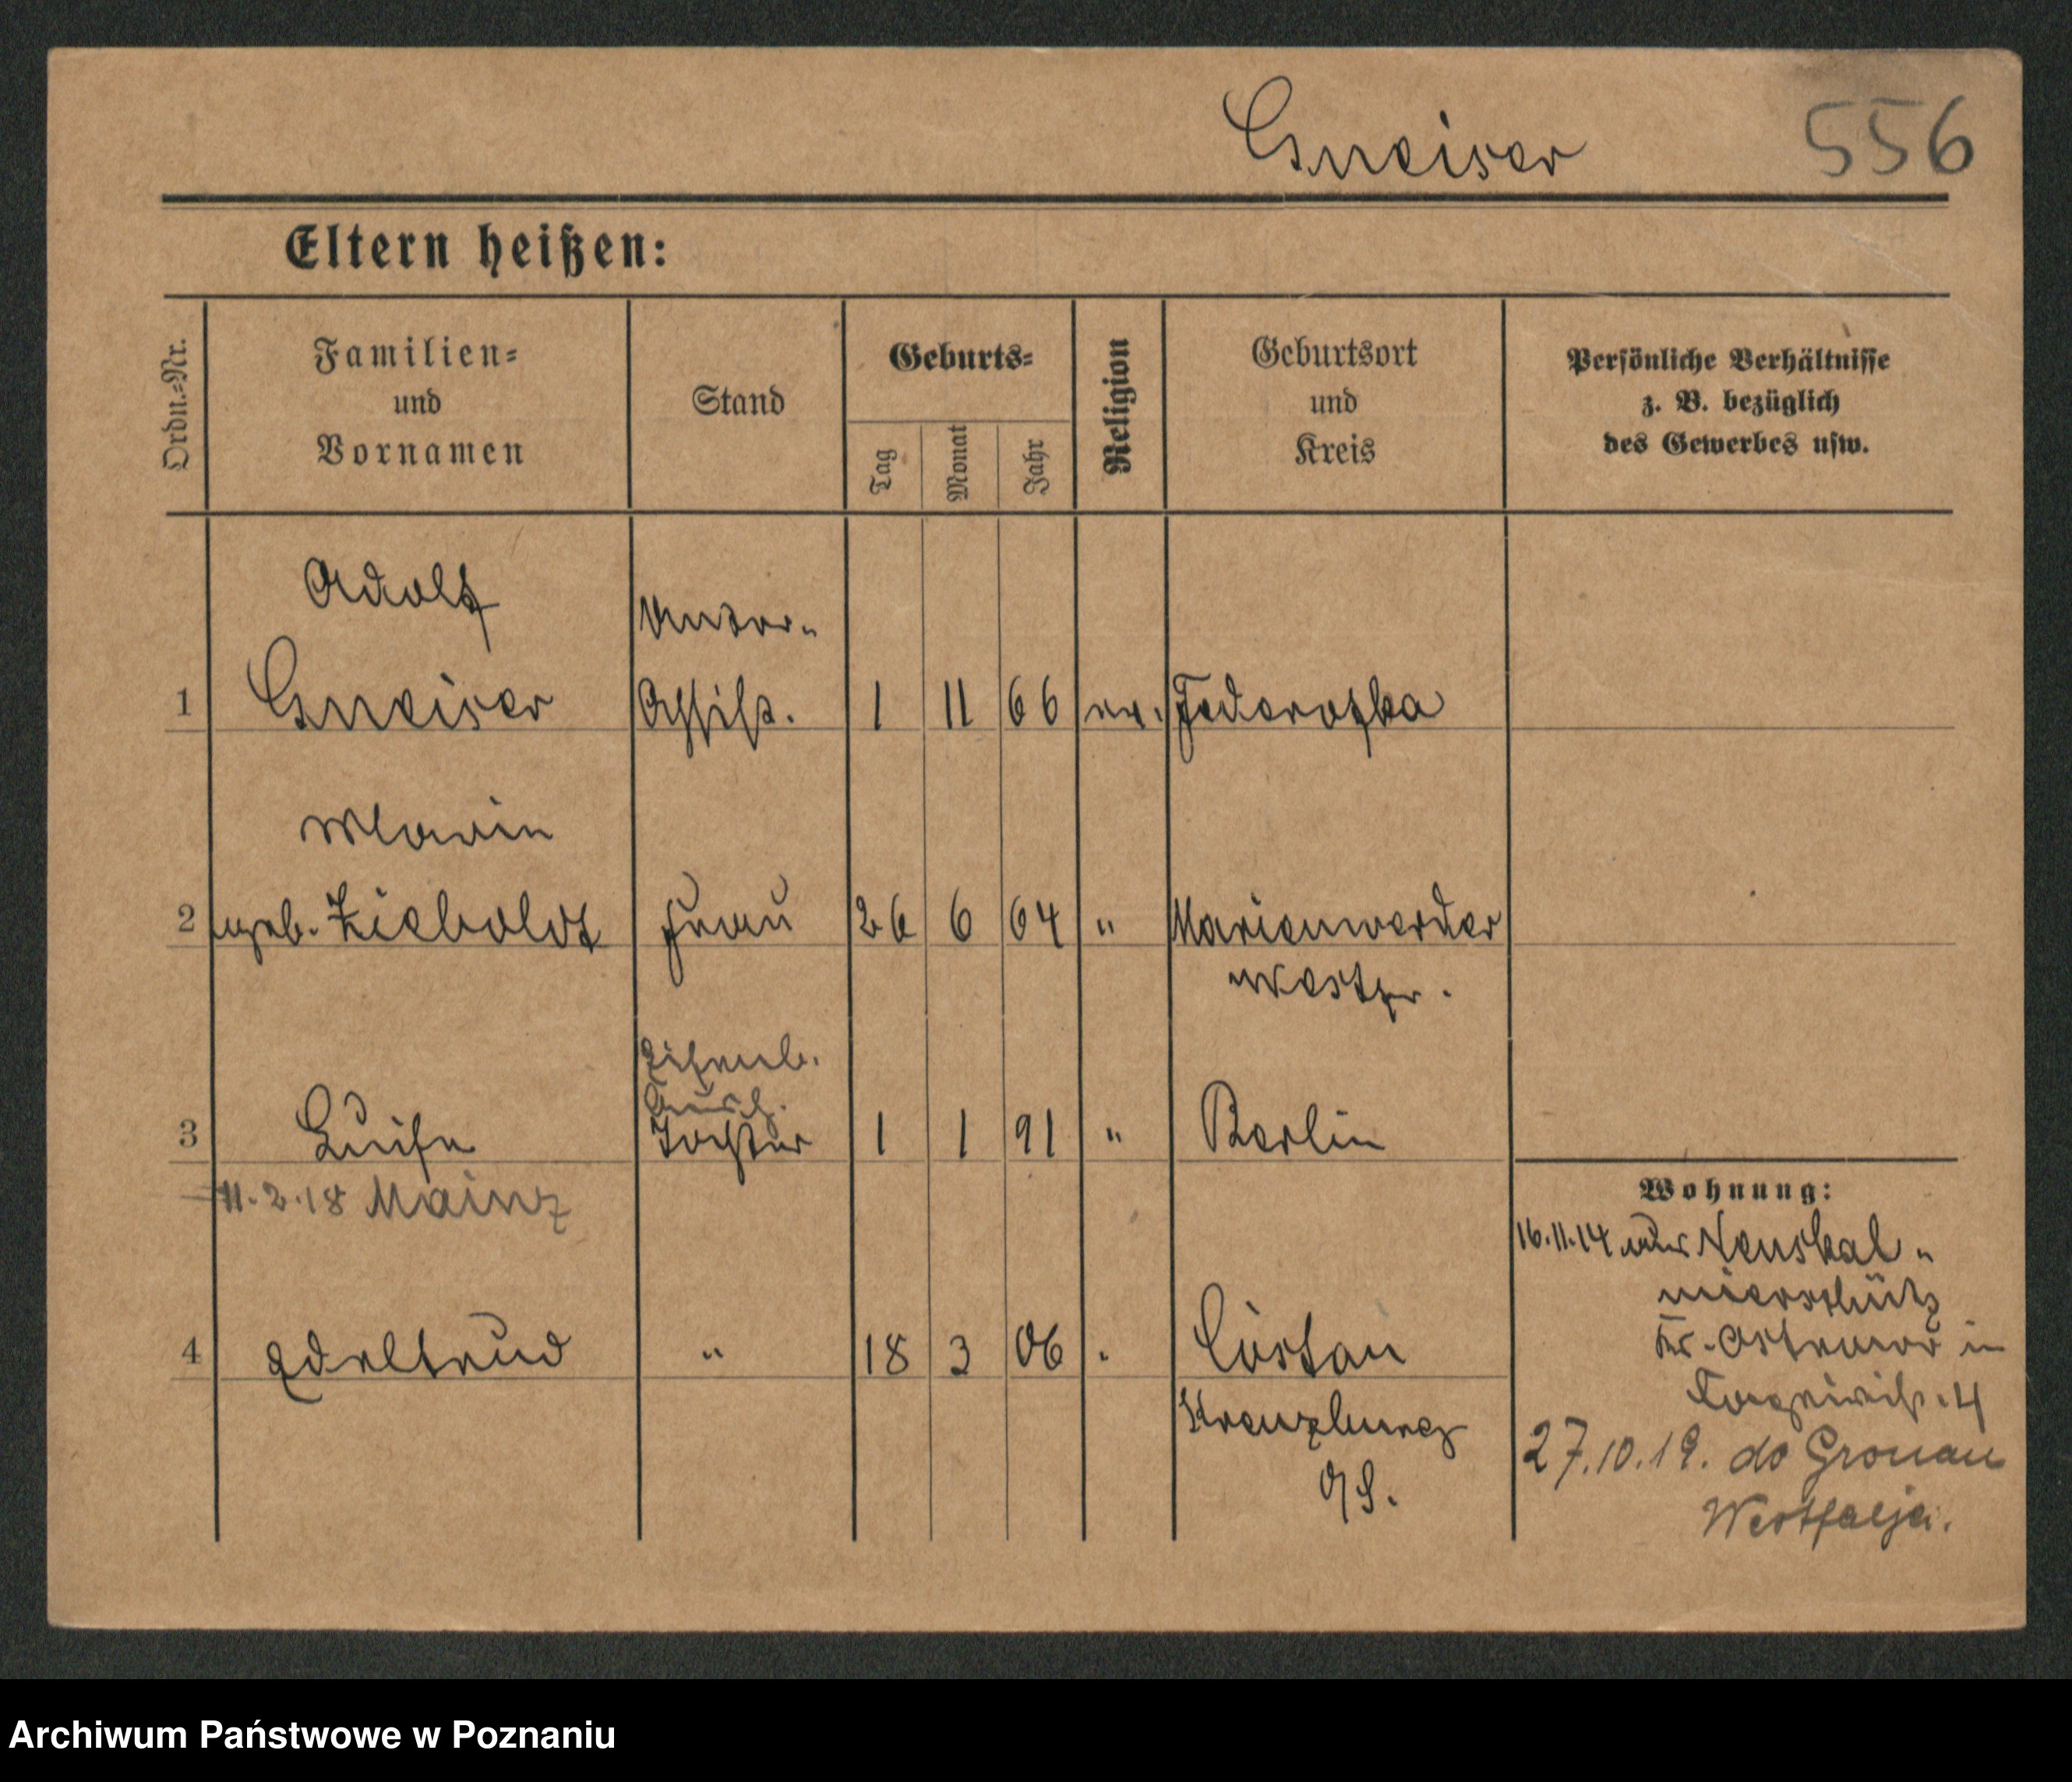 Gneiser 556
Eltern heißen:
Ordn.-Nr.
Familien-
und
Vornamen
Stand
Geburts-
Tag
Monat
Jahr
Religion
Geburtsort
und
Kreis
Persönliche Verhältnisse
z. B. bezüglich
des Gewerbes usw.
Adolf
Unter-
1 Gneiser Assist. 1 11 66 ev.
Marie
2 geb. Zieboldt Frau 26 6 64 " Marienwerder
Westpr.
Eisenb.
3 Luise Tochter 1 1 91 " Berlin
11.2.18 Mainz
Wohnung:
16.11.14
4 Edeltrud " 18 3 06 "
Kr. Ostrowo in
Kreuzburg
O/S.
27.10.19. do Gronau
Westfalja.
Archiwum Państwowe w Poznaniu